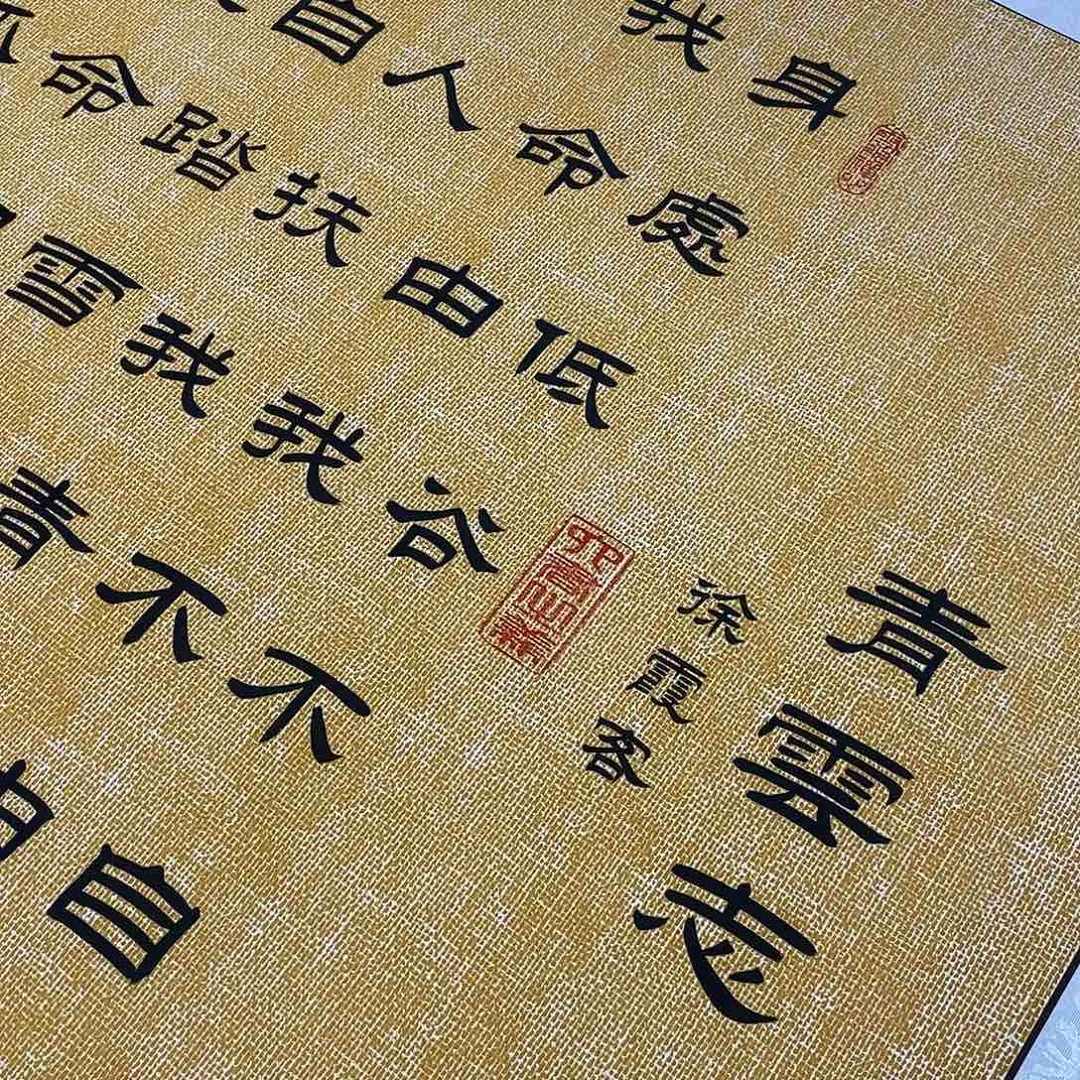 青雲志
徐霞客
身處低谷不自
我命由我不由
人扶我青
自踏雪
命